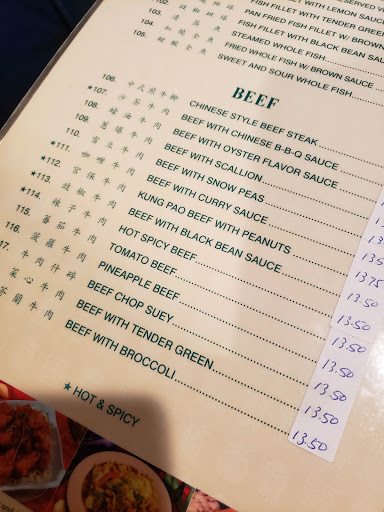 102.
103. FISH FILLET WITH LEMON SAUCE
104. PAN FRIED FISH FILLET W. BROWN
105. FISH FILLET WITH BLACK BEAN SAU
STEAMED WHOLE FISH
FRIED WHOLE FISH W. BROWN SAUCE
SWEET AND SOUR WHOLE FISH
BEEF
106. 中式煎牛柳 CHINESE STYLE BEEF STEAK
*107. 沙茶牛肉 BEEF WITH CHINESE B-B-Q SAUCE
108. 蠔油牛肉 BEEF WITH OYSTER FLAVOR SAUCE
109. 蔥爆牛肉 BEEF WITH SCALLION
110. 雪豆牛肉 BEEF WITH SNOW PEAS
*111. 咖喱牛肉 BEEF WITH CURRY SAUCE
*112. 宮保牛肉 KUNG PAO BEEF WITH PEANUTS
*113. 豉椒牛肉 BEEF WITH BLACK BEAN SAUCE
*114. 辣子牛肉 HOT SPICY BEEF
115. 蕃茄牛肉 TOMATO BEEF
116. 菠蘿牛肉 PINEAPPLE BEEF
17. 牛肉什碎 BEEF CHOP SUEY
菜心牛肉 BEEF WITH TENDER GREEN
芥蘭牛肉 BEEF WITH BROCCOLI
13.75
13.50
13.50
13.50
13.50
13.50
13.50
13.50
* HOT & SPICY